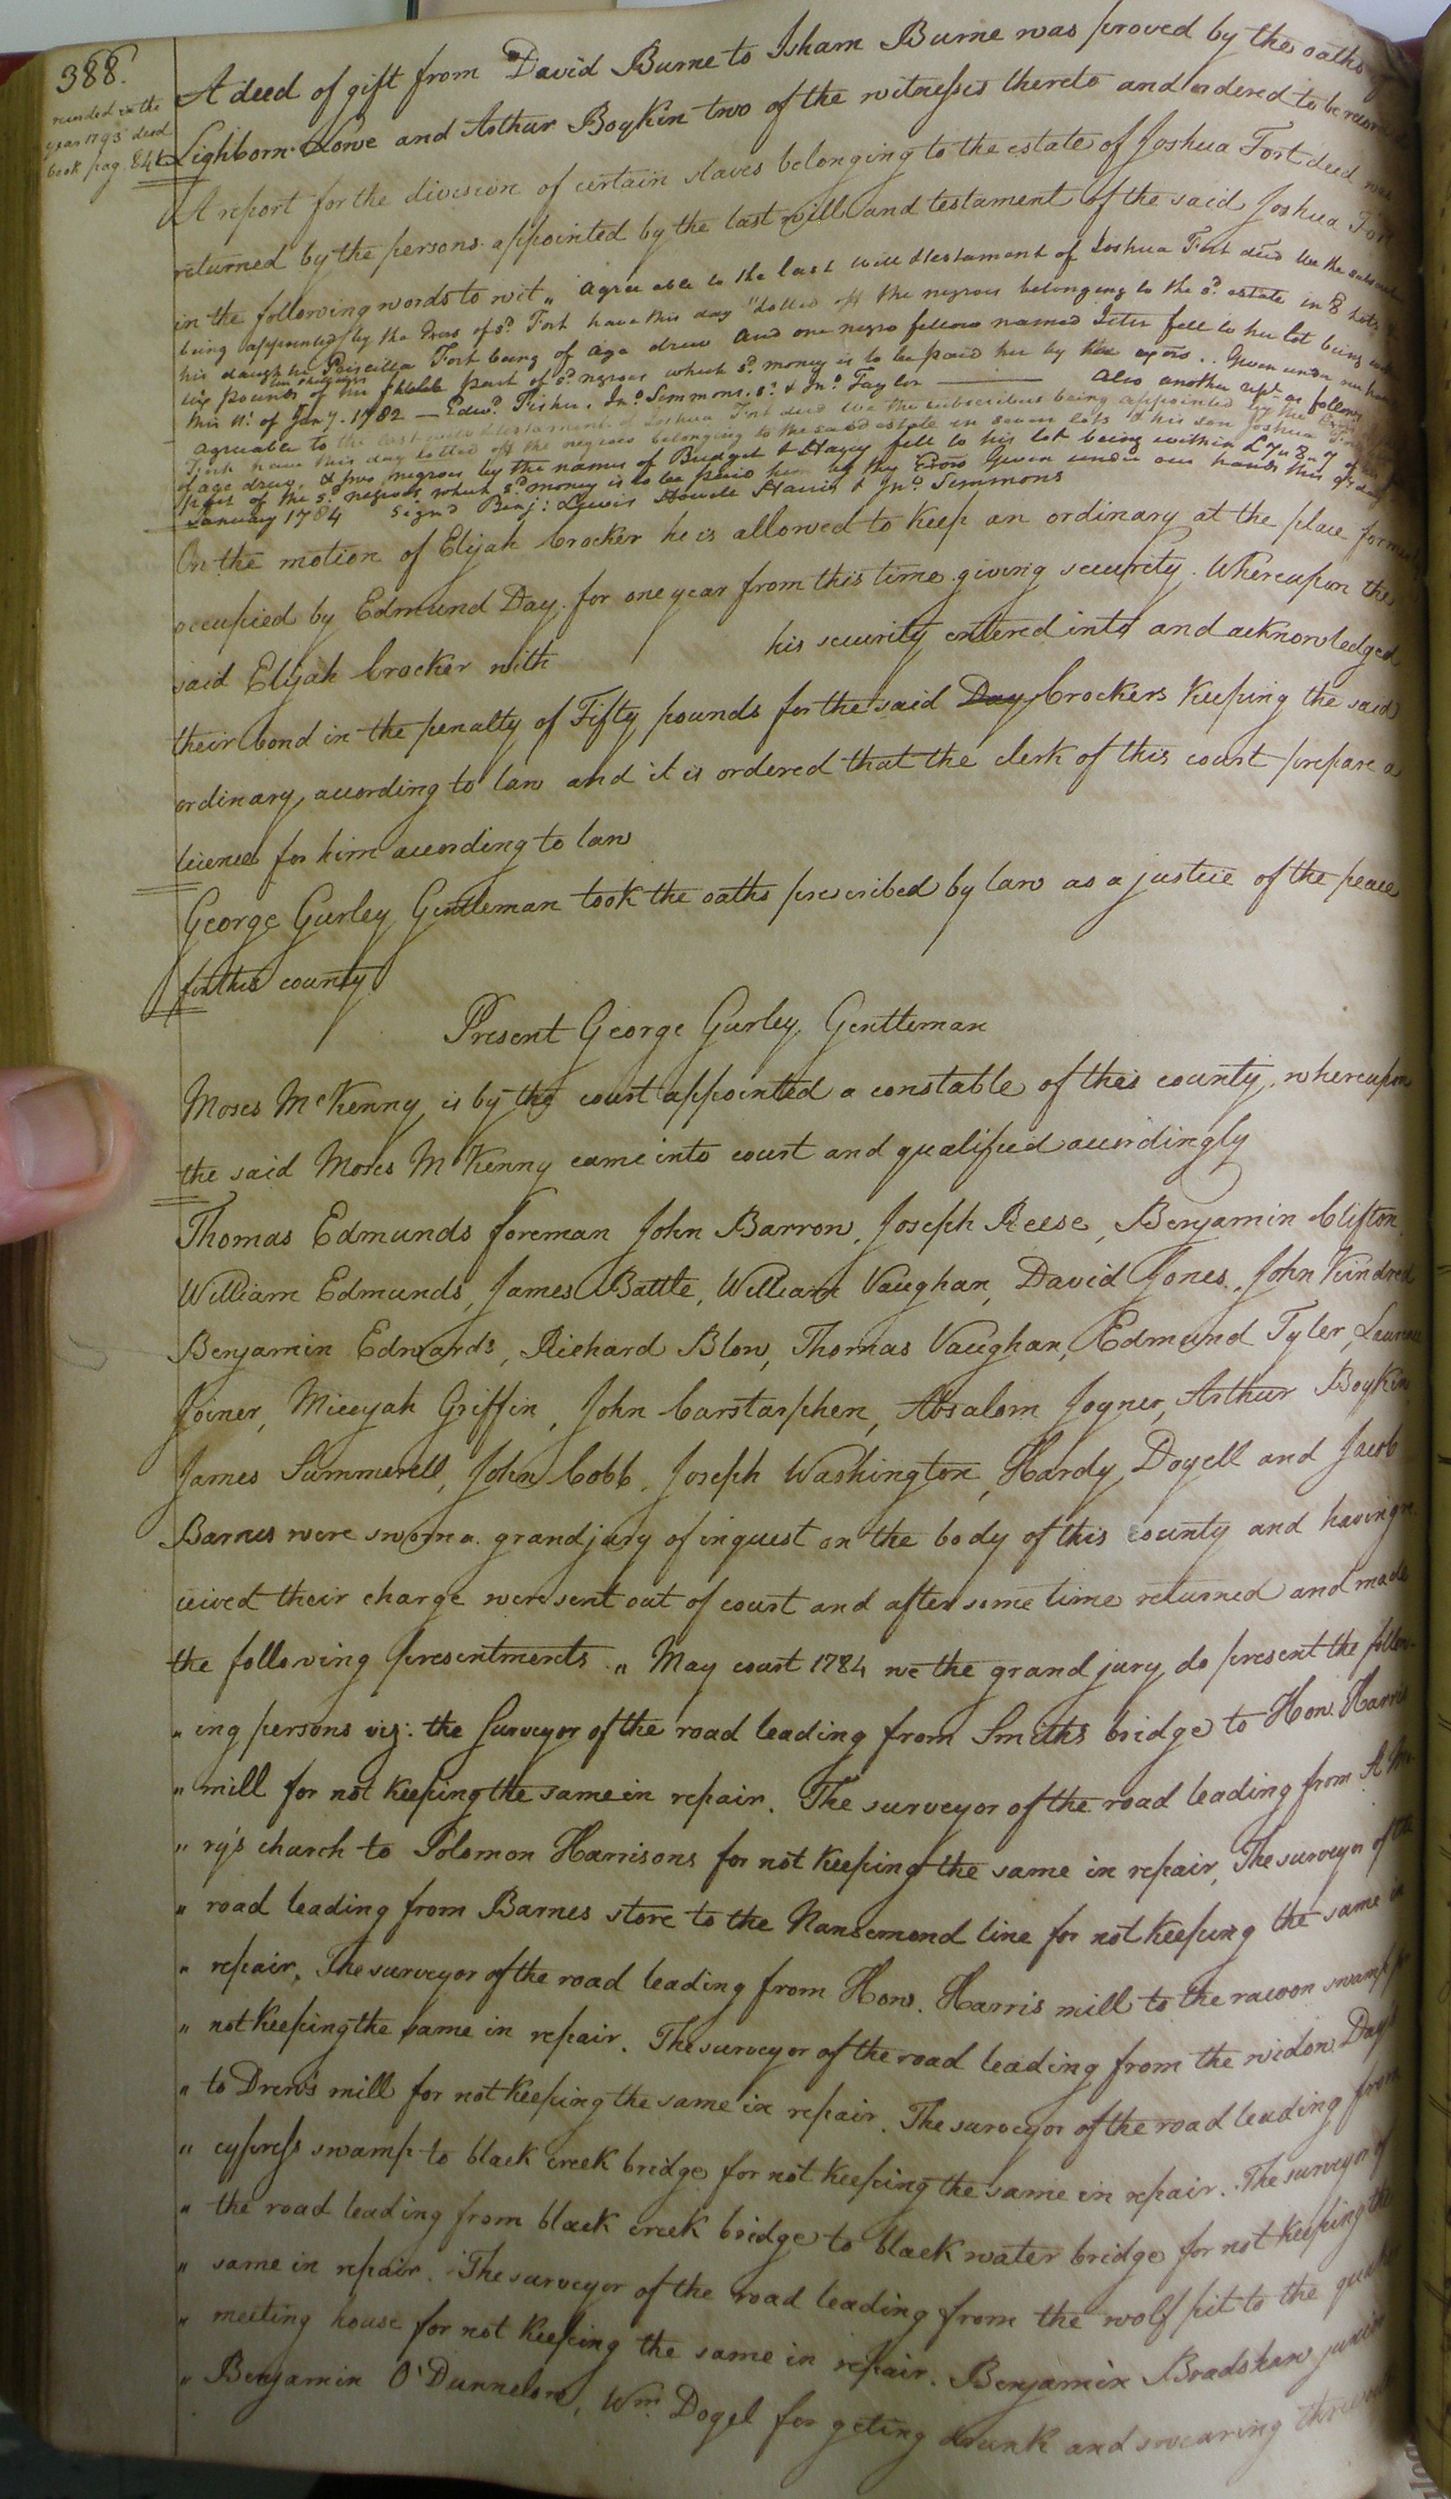 388.
A deed of gift from David Burne to Isham Burne was proved by the oaths of
Lighborn Lowe and Arthur Boykin two of the witnesses thereto and ordered to be recorded
recorded in the
year 1793 deed
book pag.
A report for the division of certain slaves belonging to the estate of Joshua Fort deed was
returned by the persons appointed by the last will and testament of the said Joshua Fort
in the following words to wit " agreeable to the last will & testament of Joshua Fort deed We the subscribers
being appointed by the Exors of sd. Fort have this day "lotted off the negroes belonging to the sd. estate in 8 lots
his daughter Priscilla Fort being of age drew and one negro fellow named Peter fell to her lot being
six pounds ten shillings of her part of sd. negroes which sd. money is to be paid her by the exors.. Given under our hands
this 11t. of Jany. 1782 — Edwd. Fisher, Jno. Simmons. & Jno. Taylor ——— Also another as follows
agreeable to the last will & testament of Joshua Fort deed We the subscribers being appointed by the
Fort have this day lotted off the negroes belonging to the said estate in seven lots & his son Joshua Fort
of age drew, & two negroes by the names of Budget & Hary fell to his lot being within £7 " 8 " 9 of his
part of the sd. negroes, which sd. money is to be paid him by the Exors Given under our hands this 9th day
January 1784 Signd Benj: Lewis Howell Harris & Jno. Simmons
On the motion of Elijah Crocker he is allowed to keep an ordinary at the place formerly
occupied by Edmund Day. for one year from this time giving security. Whereupon the
said Elijah Crocker with his security entered into and acknowledged
their bond in the penalty of Fifty pounds for the said Day Crockers keeping the said
ordinary, according to law and it is ordered that the clerk of this court prepare a
licence for him according to law
George Gurley Gentleman took the oaths prescribed by law as a justice of the peace
for this county
Present George Gurley, Gentleman
Moses McKenny, is by the court appointed a constable of this county, whereupon
the said Moses McKenny came into court and qualified accordingly
Thomas Edmunds foreman John Barron, Joseph Reese, Benjamin Clifton
William Edmunds, James Battle, William Vaughan, David Jones, John Kindred
Benjamin Edwards, Richard Blow, Thomas Vaughan, Edmund Tyler,
Joiner, Miccyah Griffin, John Carstarphen, Absalom Joyner, Arthur Boykin
James Summerell, John Cobb, Joseph Washington, Hardy Doyell and Jacob
Barnes were sworn a grand jury of inquest on the body of this county and having re
ceived their charge were sent out of court and after some time returned and made
the following presentments " May court 1784 we the grand jury do present the follow-
" ing persons viz: the Surveyor of the road leading from Smiths bridge to How. Harris
" mill for not keeping the same in repair. The surveyor of the road leading from St Ma-
" ry's church to Solomon Harrisons for not keeping the same in repair, The surveyor of the
" road leading from Barnes store to the Nansemond line for not keeping the same in
" repair. The surveyor of the road leading from How. Harris mill to the racoon swamp for
" not keeping the same in repair. The surveyor of the road leading from the widow Day's
" to Drew's mill for not keeping the same in repair. The surveyor of the road leading from
" cypress swamp to black creek bridge for not keeping the same in repair. The surveyor of
" the road leading from black creek bridge to black water bridge for not keeping the
" same in repair. The surveyor of the road leading from the wolf pit to the quaker
" meeting house for not keeping the same in repair. Benjamin Bradshaw junior
" Benjamin O'Dunnelon, Wm. Dogel for geting drunk and swearing